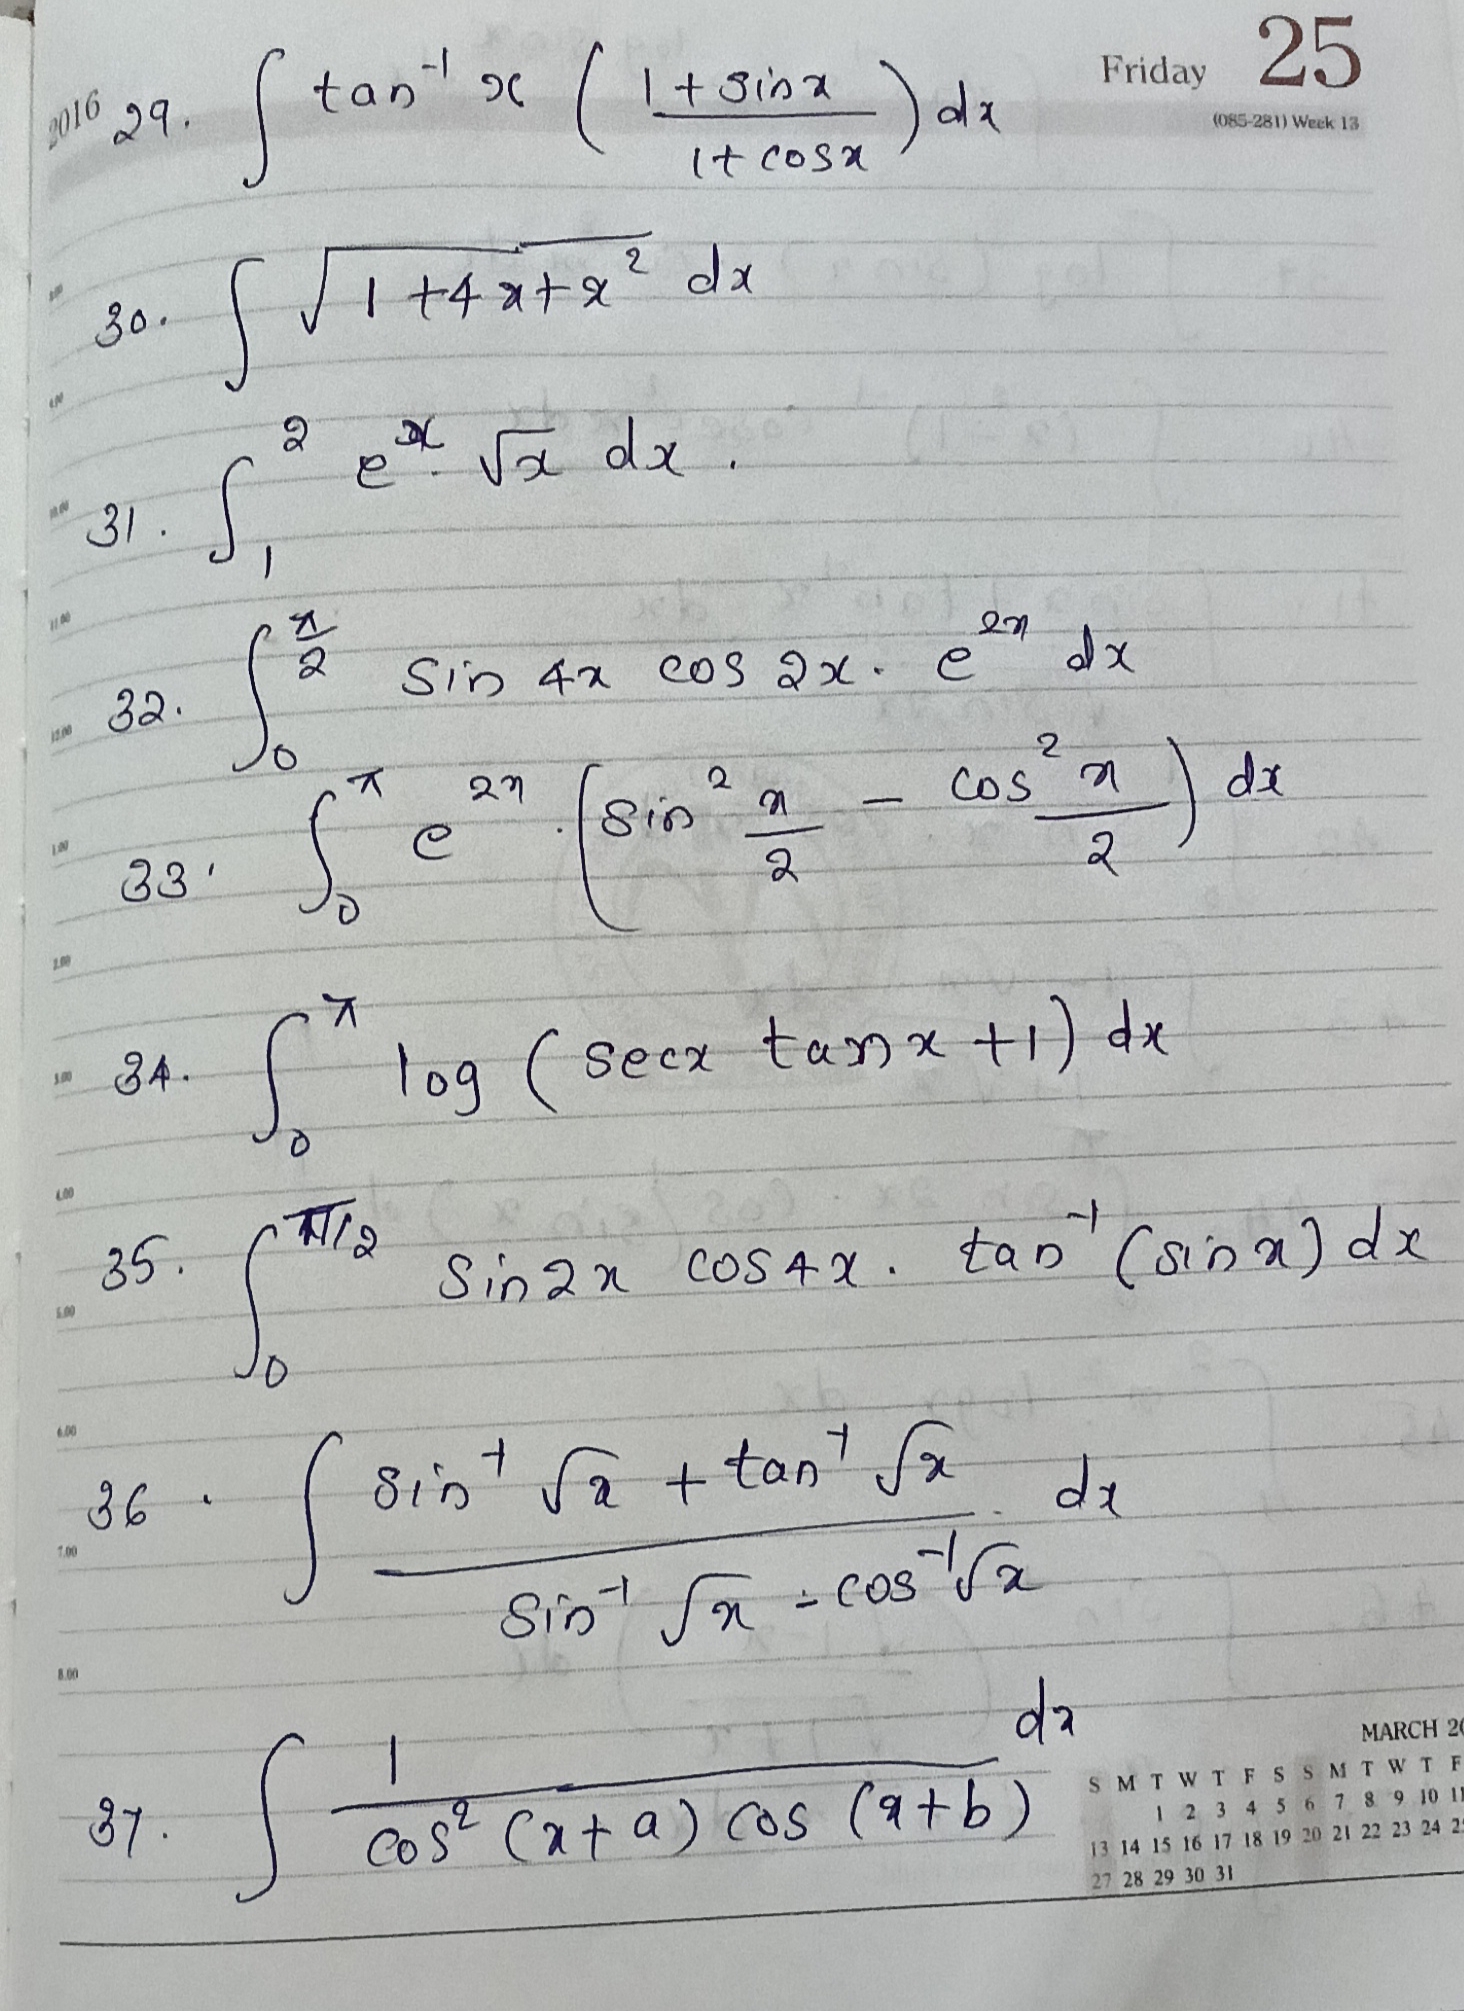 2016
Friday 25
(085-281) Week 13
29. ∫ tan⁻¹ x ( 1 + sinx / 1 + cosx ) dx
30. ∫ √(1 + 4x + x²) dx
31. ∫₁² eˣ. √x dx .
32. ∫₀^(π/2) sin 4x cos 2x . e^(2x) dx
33. ∫₀^π e^(2x) . (sin² x/2 - cos² x/2) dx
34. ∫₀^π log (secx tanx + 1) dx
35. ∫₀^(π/2) sin2x cos4x . tan⁻¹ (sinx) dx
36. ∫ sin⁻¹ √x + tan⁻¹ √x / sin⁻¹ √x - cos⁻¹ √x dx
37. ∫ 1 / cos² (x+a) cos (x+b) dx
9.00
10.00
11.00
12.00
1.00
2.00
3.00
4.00
5.00
6.00
7.00
8.00
MARCH 20
S M T W T F S S M T W T F
1 2 3 4 5 6 7 8 9 10 11
13 14 15 16 17 18 19 20 21 22 23 24 25
27 28 29 30 31